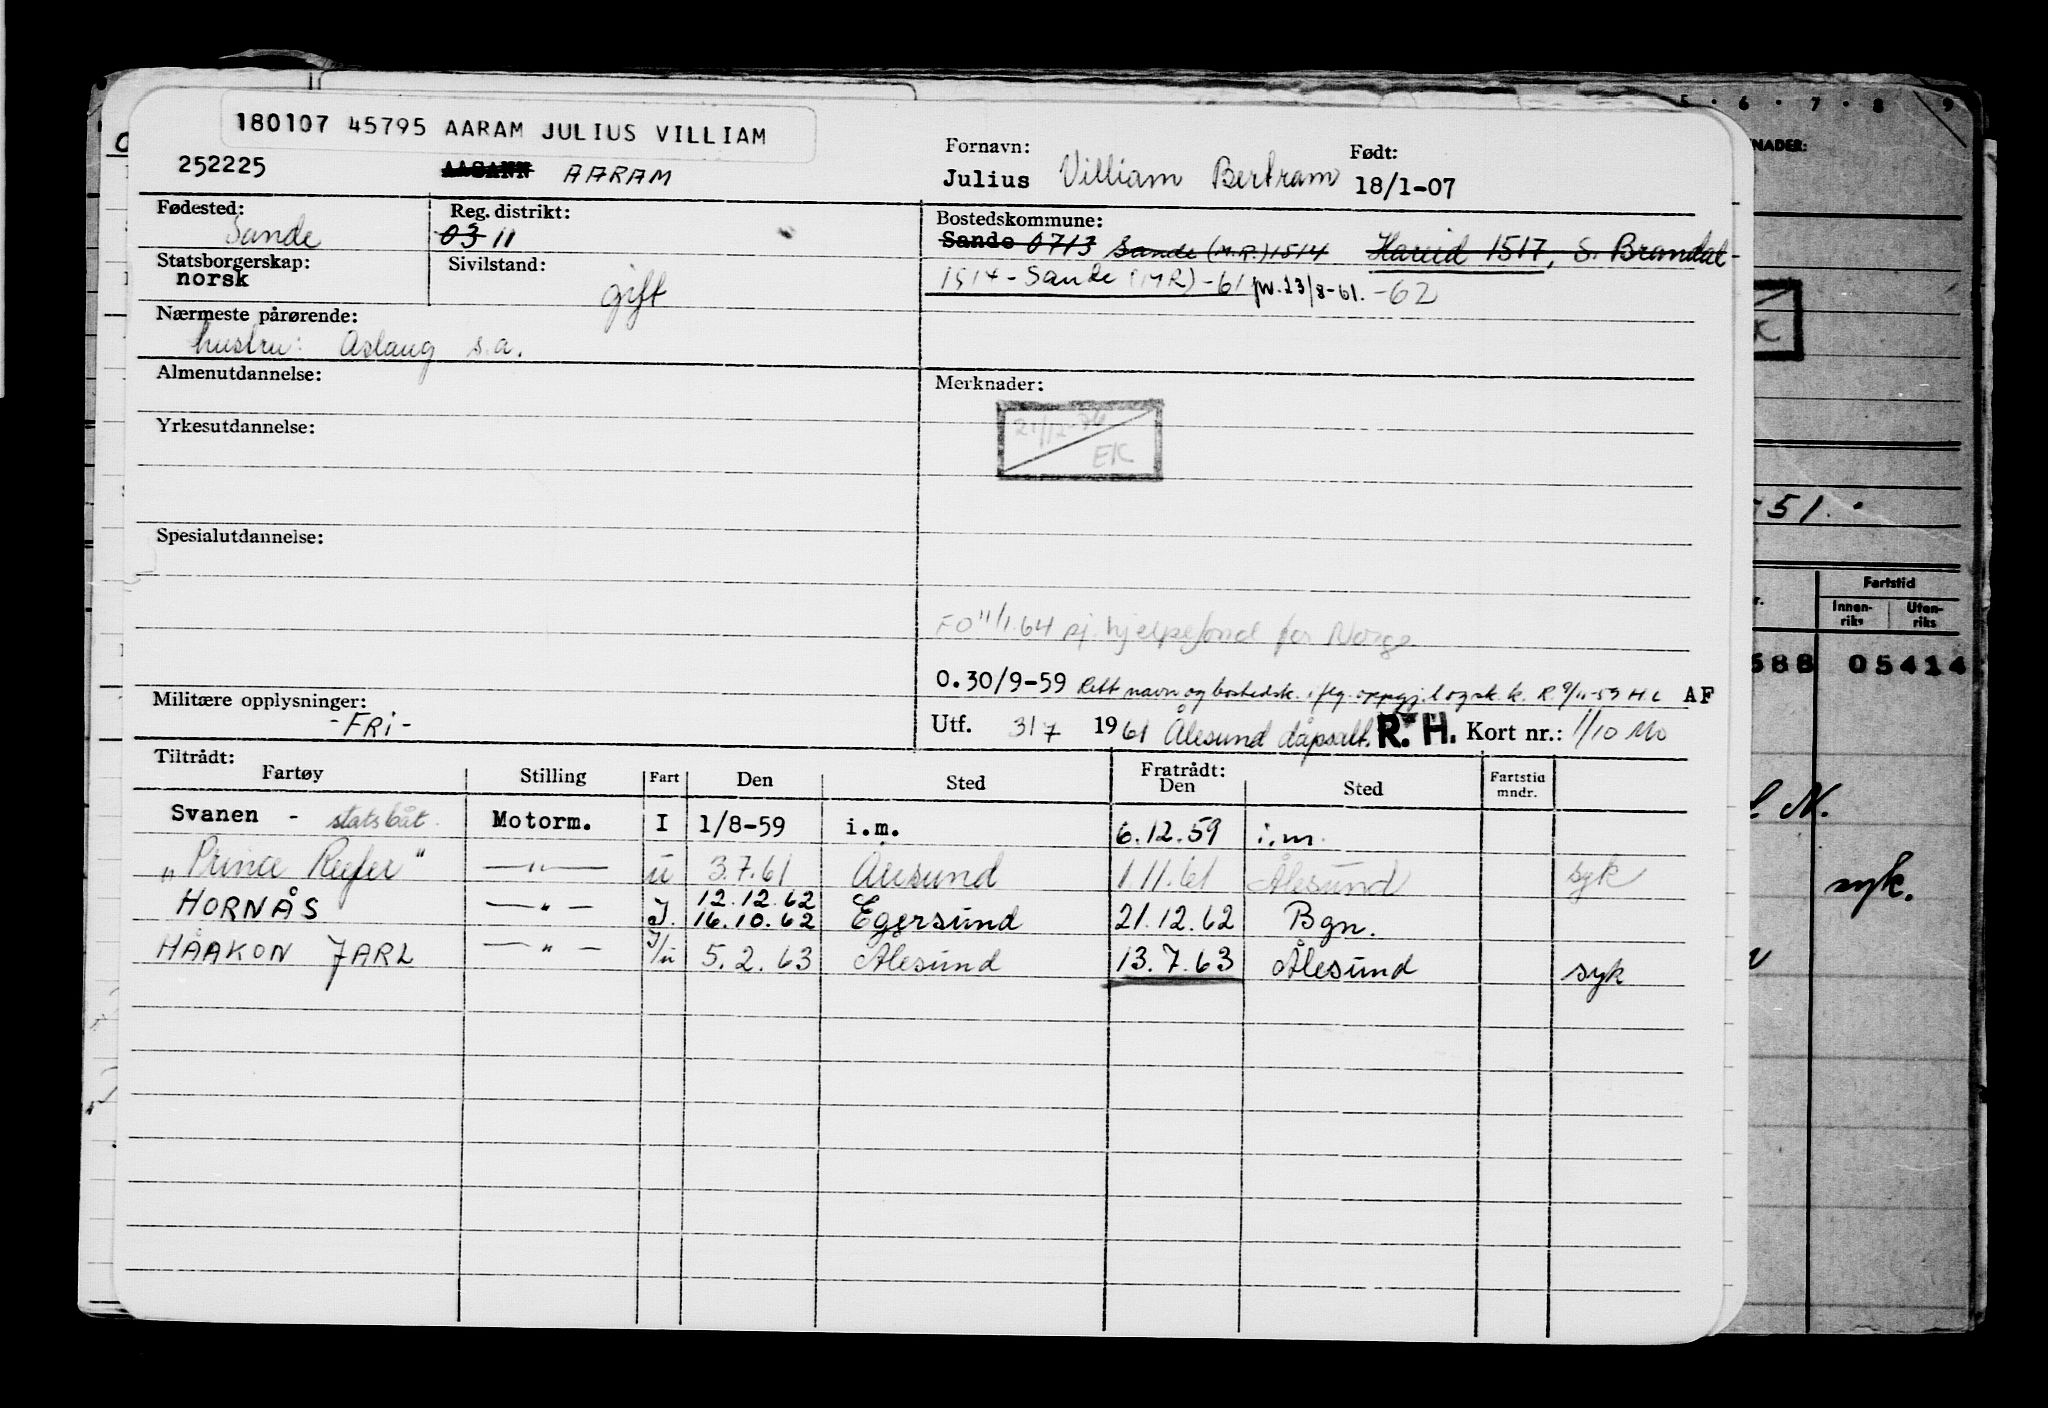 180107 45795 AARAM JULIUS VILLIAM
252225 AASANN AARAM
Fornavn: Født:
Julius Villiam Bertram 18/1-07
Fødested: Reg. distrikt: Bostedskommune:
Sande 03 11 Sande 0713 Sande (M.R.) 1514 Hareid 1517, S. Brandal
Statsborgerskap: Sivilstand: 1514 - Sande (MR) - 61 23/8-61. -62
norsk gift
Nærmeste pårørende:
hustru: Aslaug s.a.
Almenutdannelse: Merknader:
21/12-76
EK
Yrkesutdannelse:
Spesialutdannelse:
FO 11/1.64 hjelpefond for Norge
0.30/9-59 Rett navn og bostedsk. i flg. oppgj. R. 9/11-59 H.L AF
Militære opplysninger:
-FRi-
Utf. 3/7 1961 Ålesund R. H. Kort nr.: 1/10 Mo
Tiltrådt: Fratrådt:
Fartøy Stilling Fart Den Sted Den Sted Fartstid mndr.
Svanen - statsbåt. Motorm. I 1/8-59 i.m. 6.12.59 i.m.
"Prince Reefer" —"— u 3.7.61 Ålesund 1 11.61 Ålesund syk
HORNÅS —"— I 12.12.62
I. 16.10.62 Egersund 21.12.62 Bgn.
HÅAKON JARL —"— I/u 5.2.63 Ålesund 13.7.63 Ålesund syk
5 . 6 . 7 . 8 . 9
NADER:
K
-51.
Fartstid
Innen-riks Uten-riks
588 05414
syk.